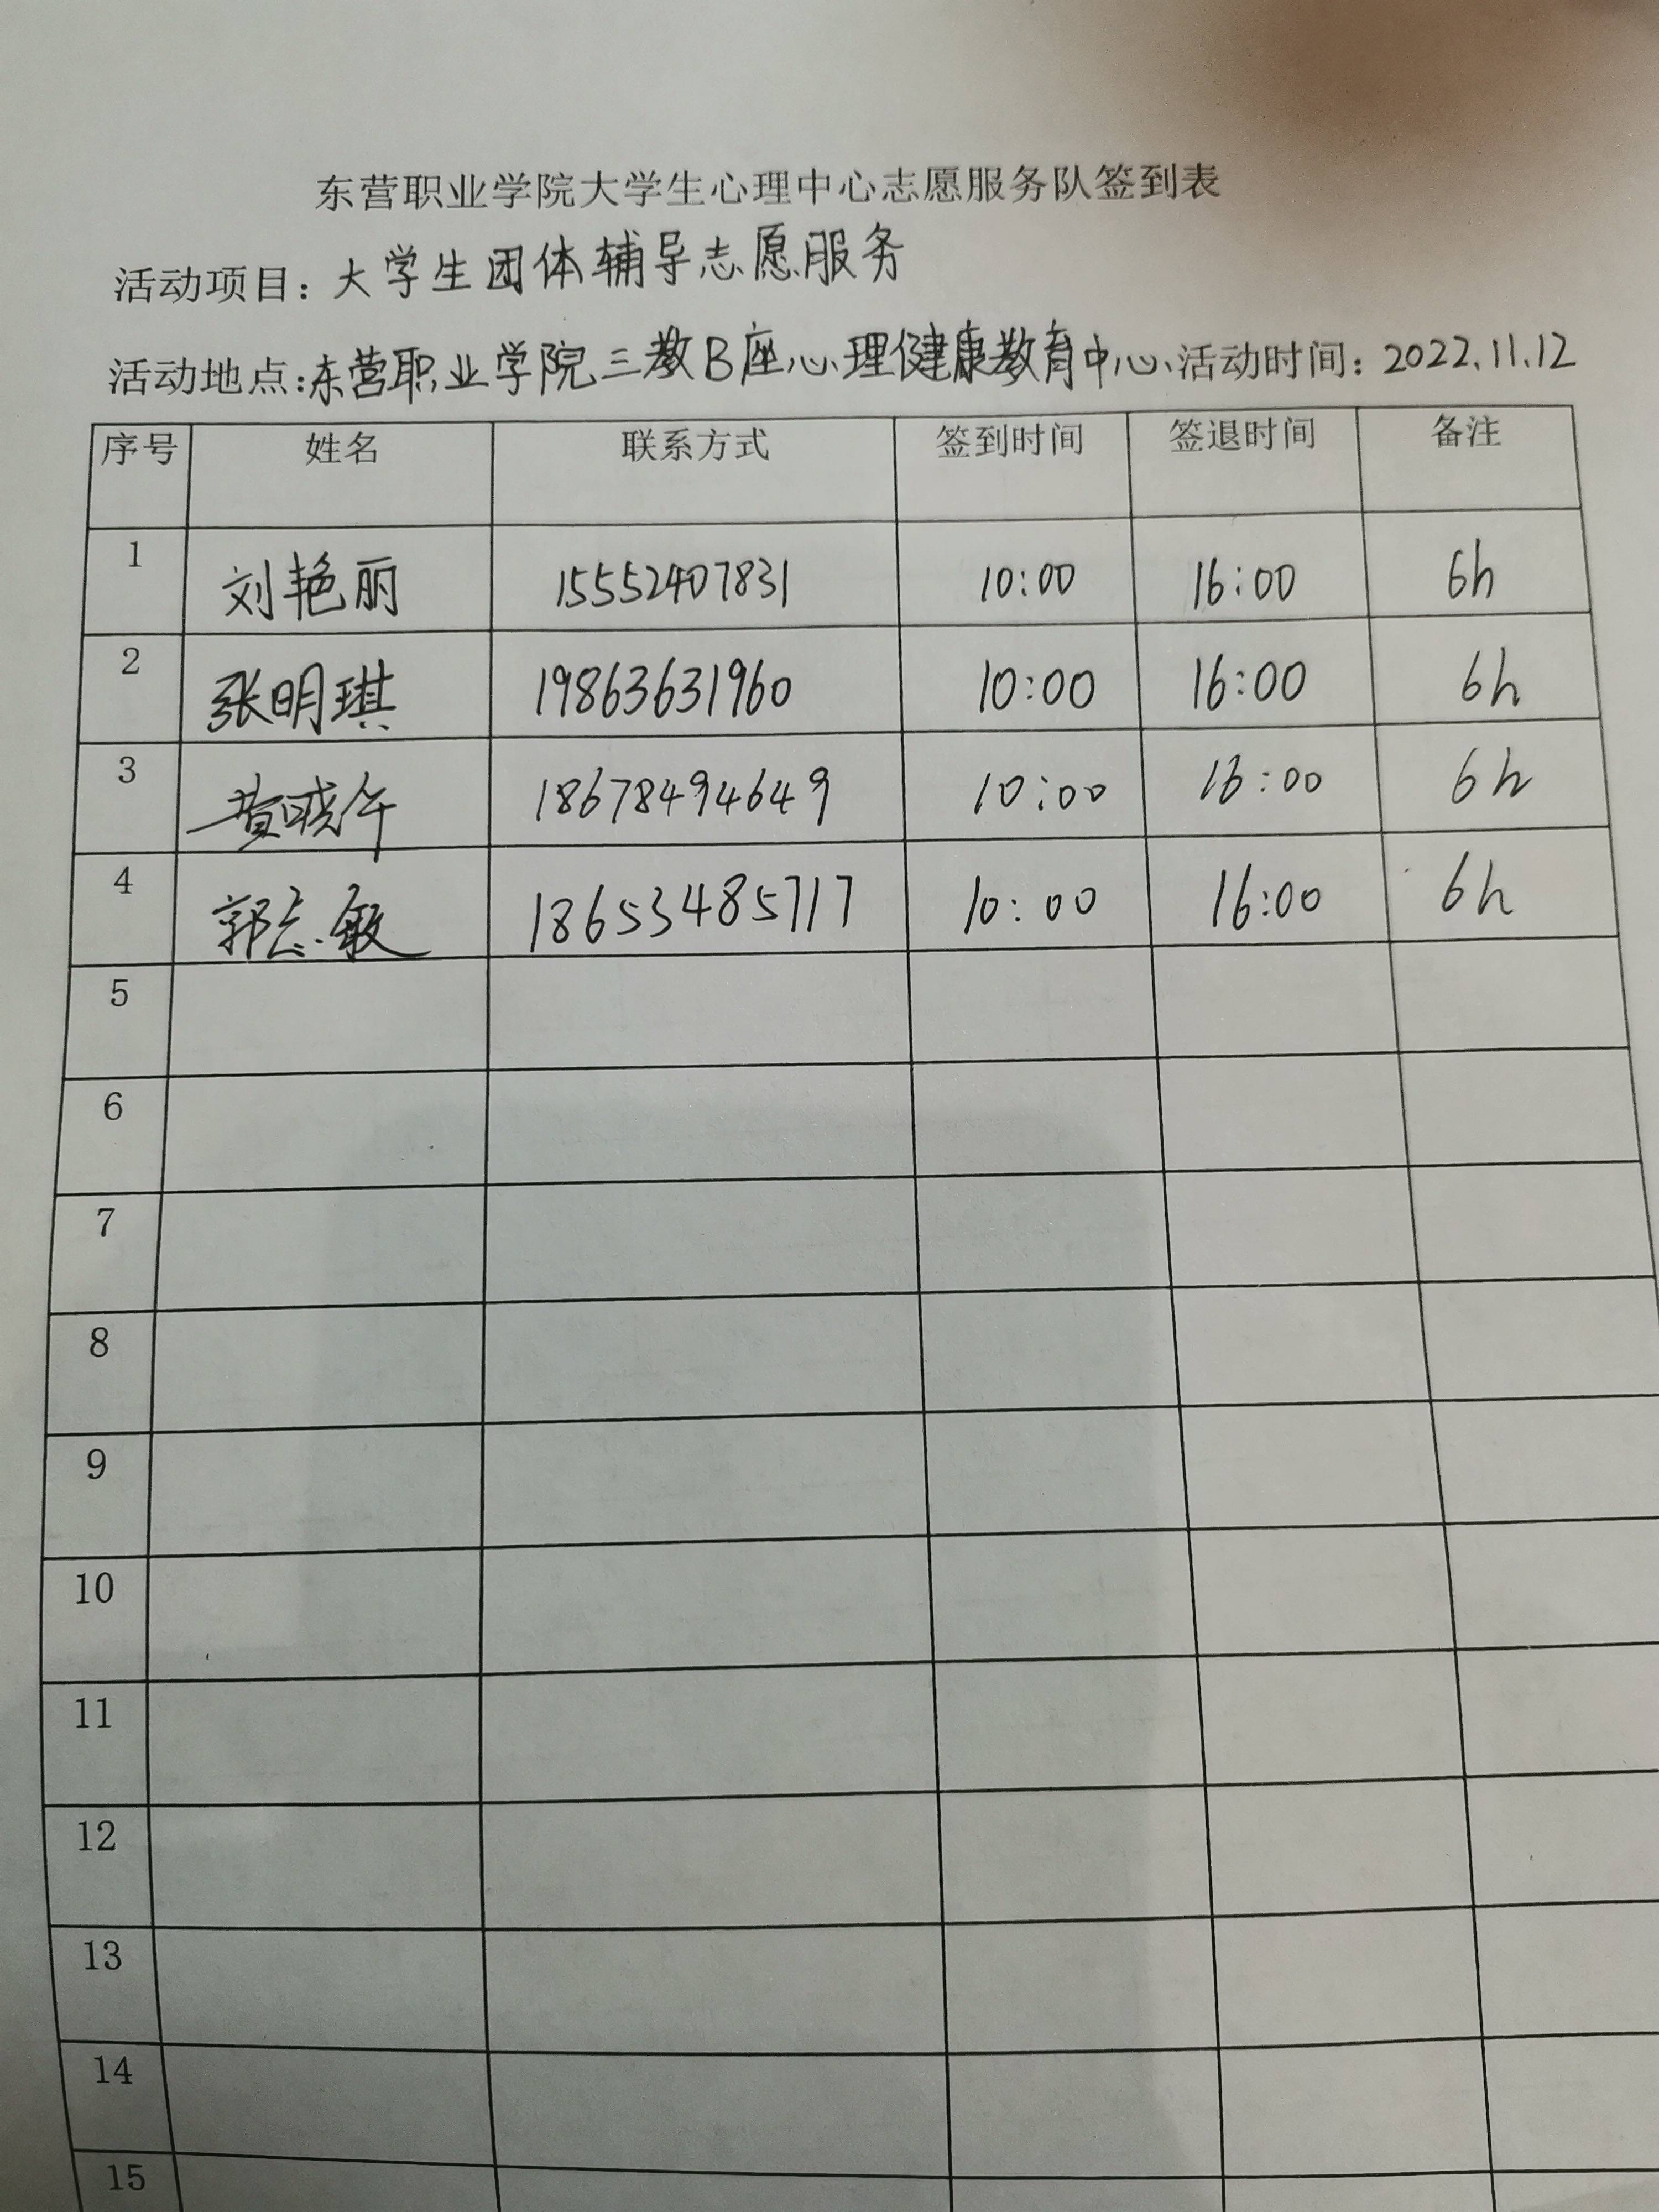 东营职业学院大学生心理中心志愿服务队签到表
活动项目：大学生团体辅导志愿服务
活动地点：东营职业学院三教B座心理健康教育中心 活动时间：2022.11.12
序号 姓名 联系方式 签到时间 签退时间 备注
1 刘艳丽 15552407831 10:00 16:00 6h
2 张明琪 19863631960 10:00 16:00 6h
3 黄晓午 18678494649 10:00 16:00 6h
4 郭志敏 18653485717 10:00 16:00 6h
5
6
7
8
9
10
11
12
13
14
15